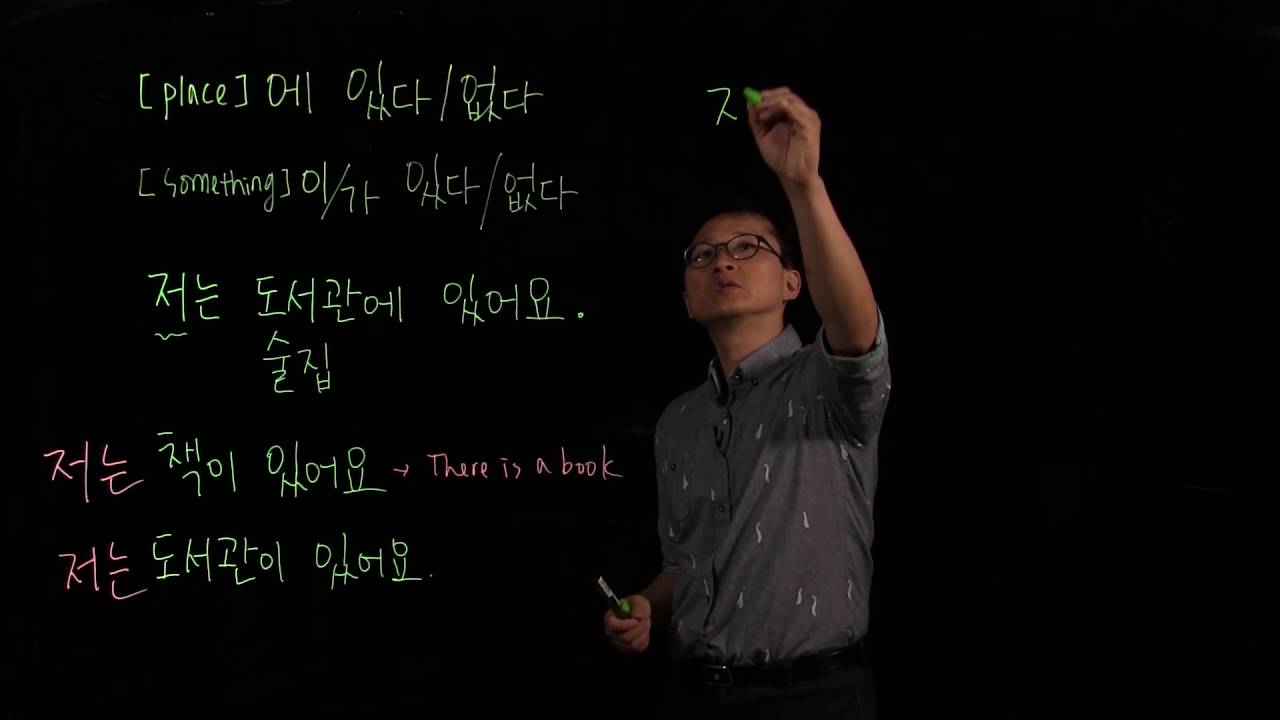 [place] 에 있다/없다
[something] 이/가 있다/없다
저는 도서관에 있어요.
술집
저는 책이 있어요 → There is a book
저는 도서관이 있어요.
ㅈ